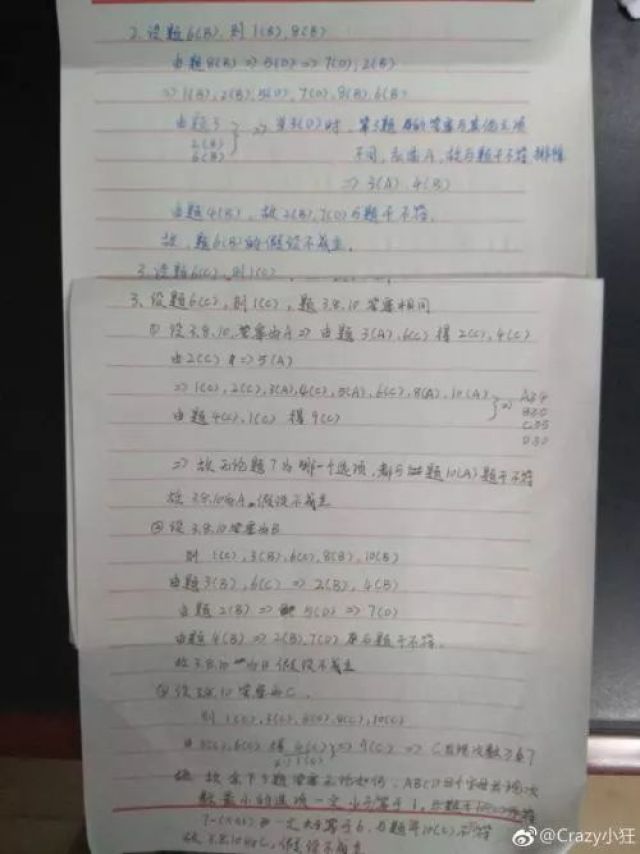 2. 设题6(B), 则1(B), 8(B)
由题8(B) => 5(D) => 7(D), 2(B)
=> 1(B), 2(B), 5(D), 7(D), 8(B), 6(B)
由题3
2(B)
6(B)
=> 当3(D)时, 第3题的答案与其他三项
不同, 故与题干不符 排除
=> 3(A), 4(B)
由题4(B), 故2(B), 7(D)与题干不符.
故, 题6(B)的假设不成立.
3. 设题6(C), 则1(C),
3. 设题6(C), 则1(C), 题3.8.10答案相同
① 设3.8.10.答案为A => 由题3(A), 6(C) 得2(C), 4(C)
由2(C) => 5(A)
=> 1(C), 2(C), 3(A), 4(C), 5(A), 6(C), 8(A), 10(A)
由题4(C), 1(C) 得9(C)
=> A≥4
B≥0
C≥5
D≥0
=> 故无论题7为哪一个选项, 都与题10(A)题干不符
故3.8.10为A, 假设不成立
② 设3.8.10答案为B
则1(C), 3(B), 6(C), 8(B), 10(B)
由题3(B), 6(C) => 2(B), 4(B)
由题2(B) => 5(D) => 7(D)
由题4(B) => 2(B), 7(D)与题干不符.
故3.8.10为B假设不成立
③ 设3.8.10答案为C,
则1(C), 3(C), 6(C), 8(C), 10(C)
由3(C), 6(C) 得4(C) => 9(C) => C出现次数≥7
故余下3题答案无论如何, ABCD四个字母出现次
数最小的选项一定小于等于1, 与题干10(C)不符
一定大于等于6, 与题干10(C)不符
故3.8.10为C, 假设不成立
@Crazy小狂